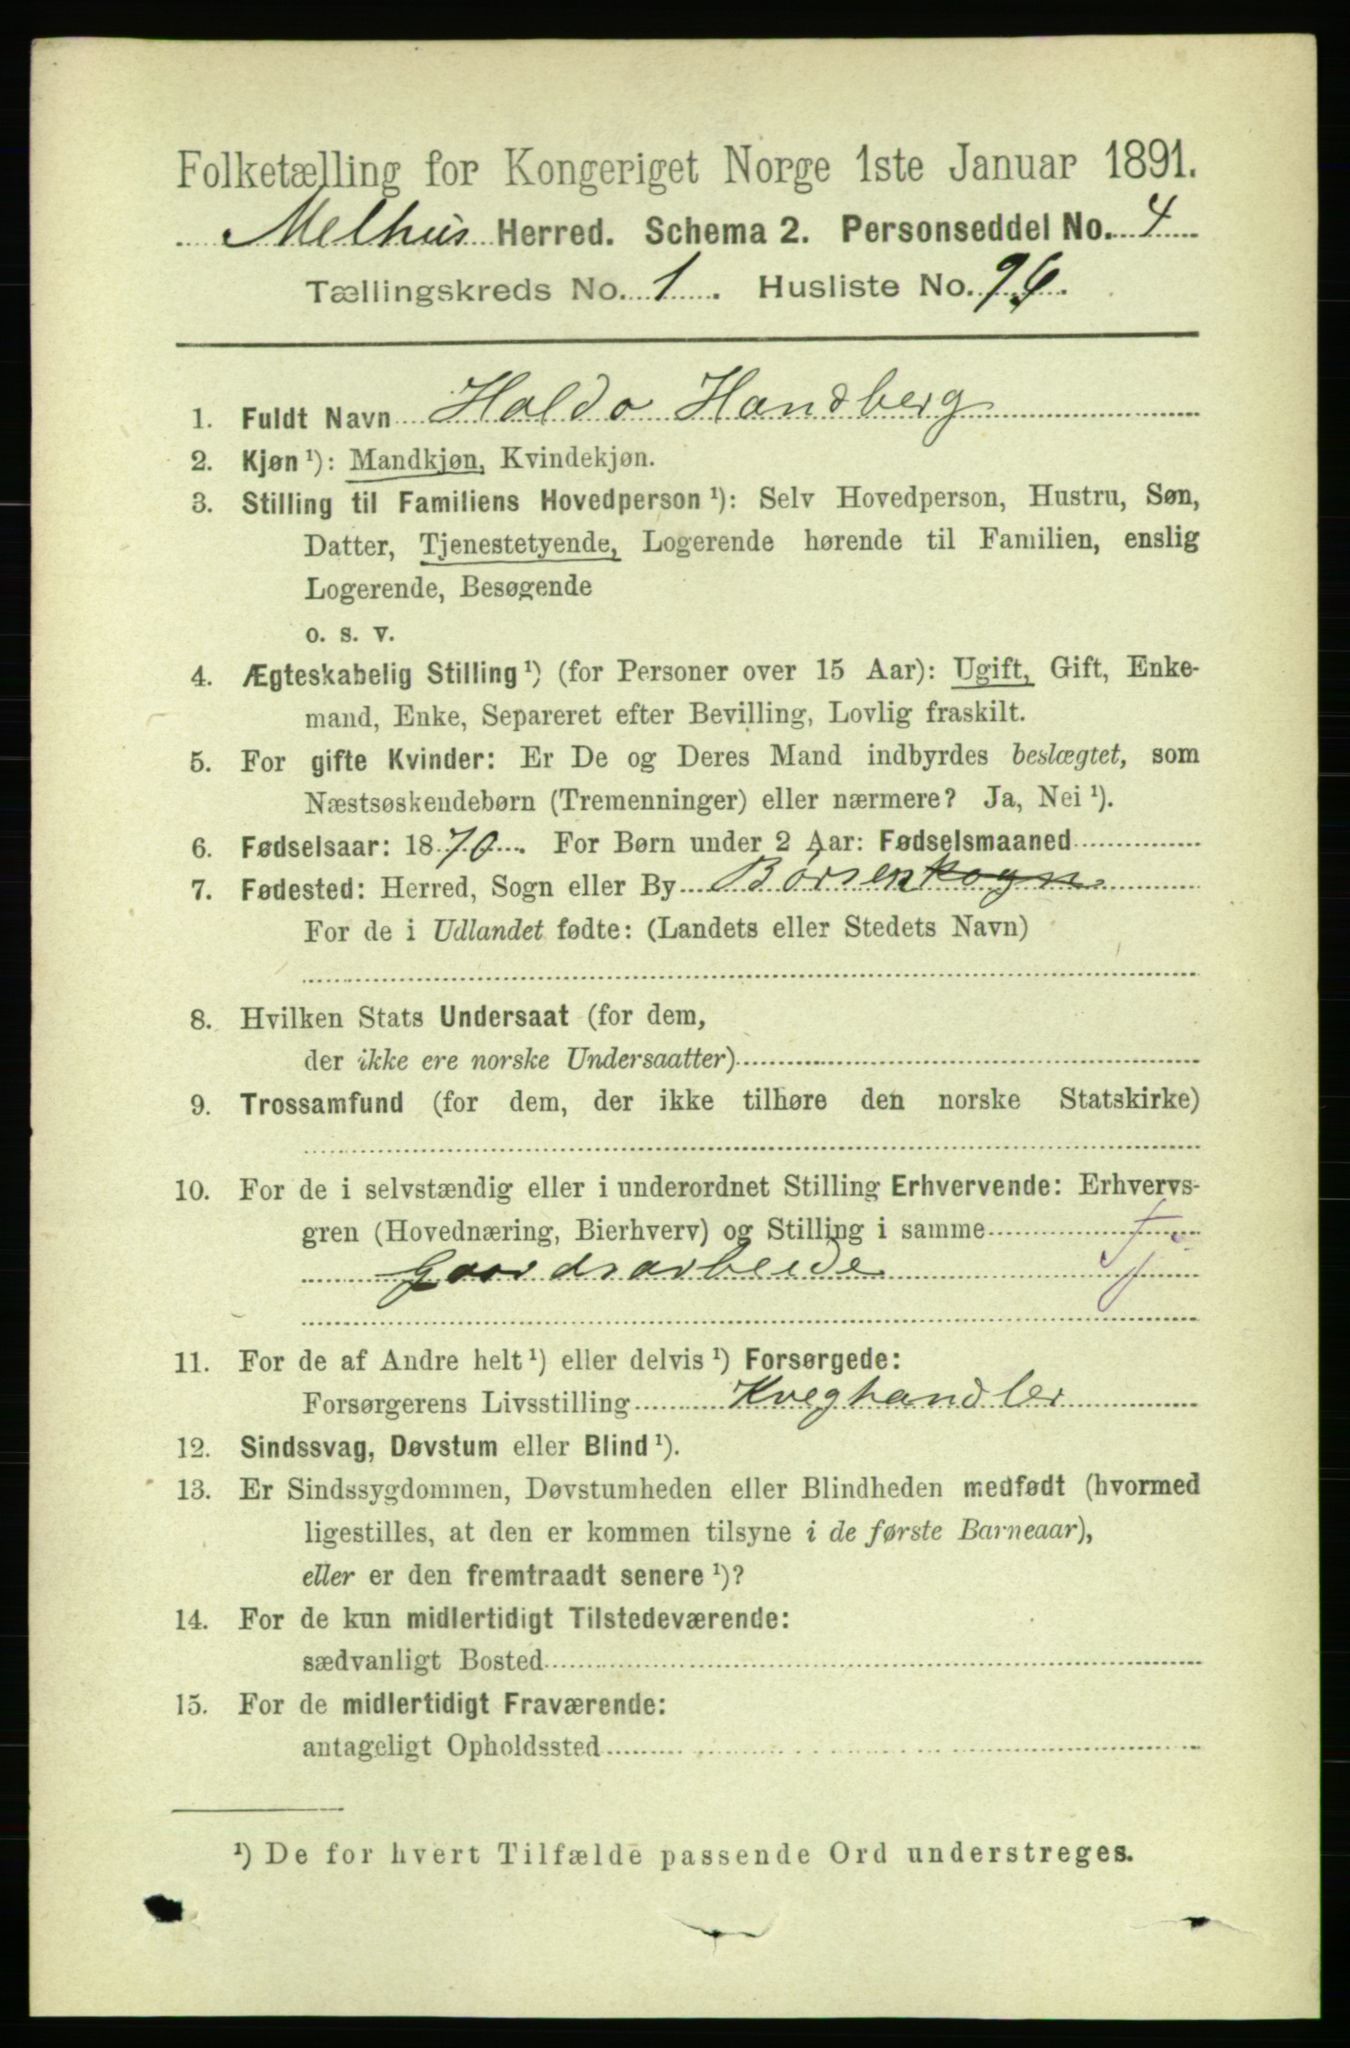 Folketælling for Kongeriget Norge 1ste Januar 1891.
Melhus Herred. Schema 2. Personseddel No. 4
Tællingskreds No. 1. Husliste No. 96.
1. Fuldt Navn Haldo Handberg
2. Kjøn ¹): Mandkjøn, Kvindekjøn.
3. Stilling til Familiens Hovedperson ¹): Selv Hovedperson, Hustru, Søn,
Datter, Tjenestetyende, Logerende hørende til Familien, enslig
Logerende, Besøgende
o. s. v.
4. Ægteskabelig Stilling ¹) (for Personer over 15 Aar): Ugift, Gift, Enke-
mand, Enke, Separeret efter Bevilling, Lovlig fraskilt.
5. For gifte Kvinder: Er De og Deres Mand indbyrdes beslægtet, som
Næstsøskendebørn (Tremenninger) eller nærmere? Ja, Nei ¹).
6. Fødselsaar: 1870. For Børn under 2 Aar: Fødselsmaaned
7. Fødested: Herred, Sogn eller By Børsen
For de i Udlandet fødte: (Landets eller Stedets Navn)
8. Hvilken Stats Undersaat (for dem,
der ikke ere norske Undersaatter)
9. Trossamfund (for dem, der ikke tilhøre den norske Statskirke)
10. For de i selvstændig eller i underordnet Stilling Erhvervende: Erhvervs-
gren (Hovednæring, Bierhverv) og Stilling i samme
Gaardsarbeide
11. For de af Andre helt ¹) eller delvis ¹) Forsørgede:
Forsørgerens Livsstilling Kveghandler
12. Sindssvag, Døvstum eller Blind ¹).
13. Er Sindssygdommen, Døvstumheden eller Blindheden medfødt (hvormed
ligestilles, at den er kommen tilsyne i de første Barneaar),
eller er den fremtraadt senere ¹)?
14. For de kun midlertidigt Tilstedeværende:
sædvanligt Bosted
15. For de midlertidigt Fraværende:
antageligt Opholdssted
¹) De for hvert Tilfælde passende Ord understreges.